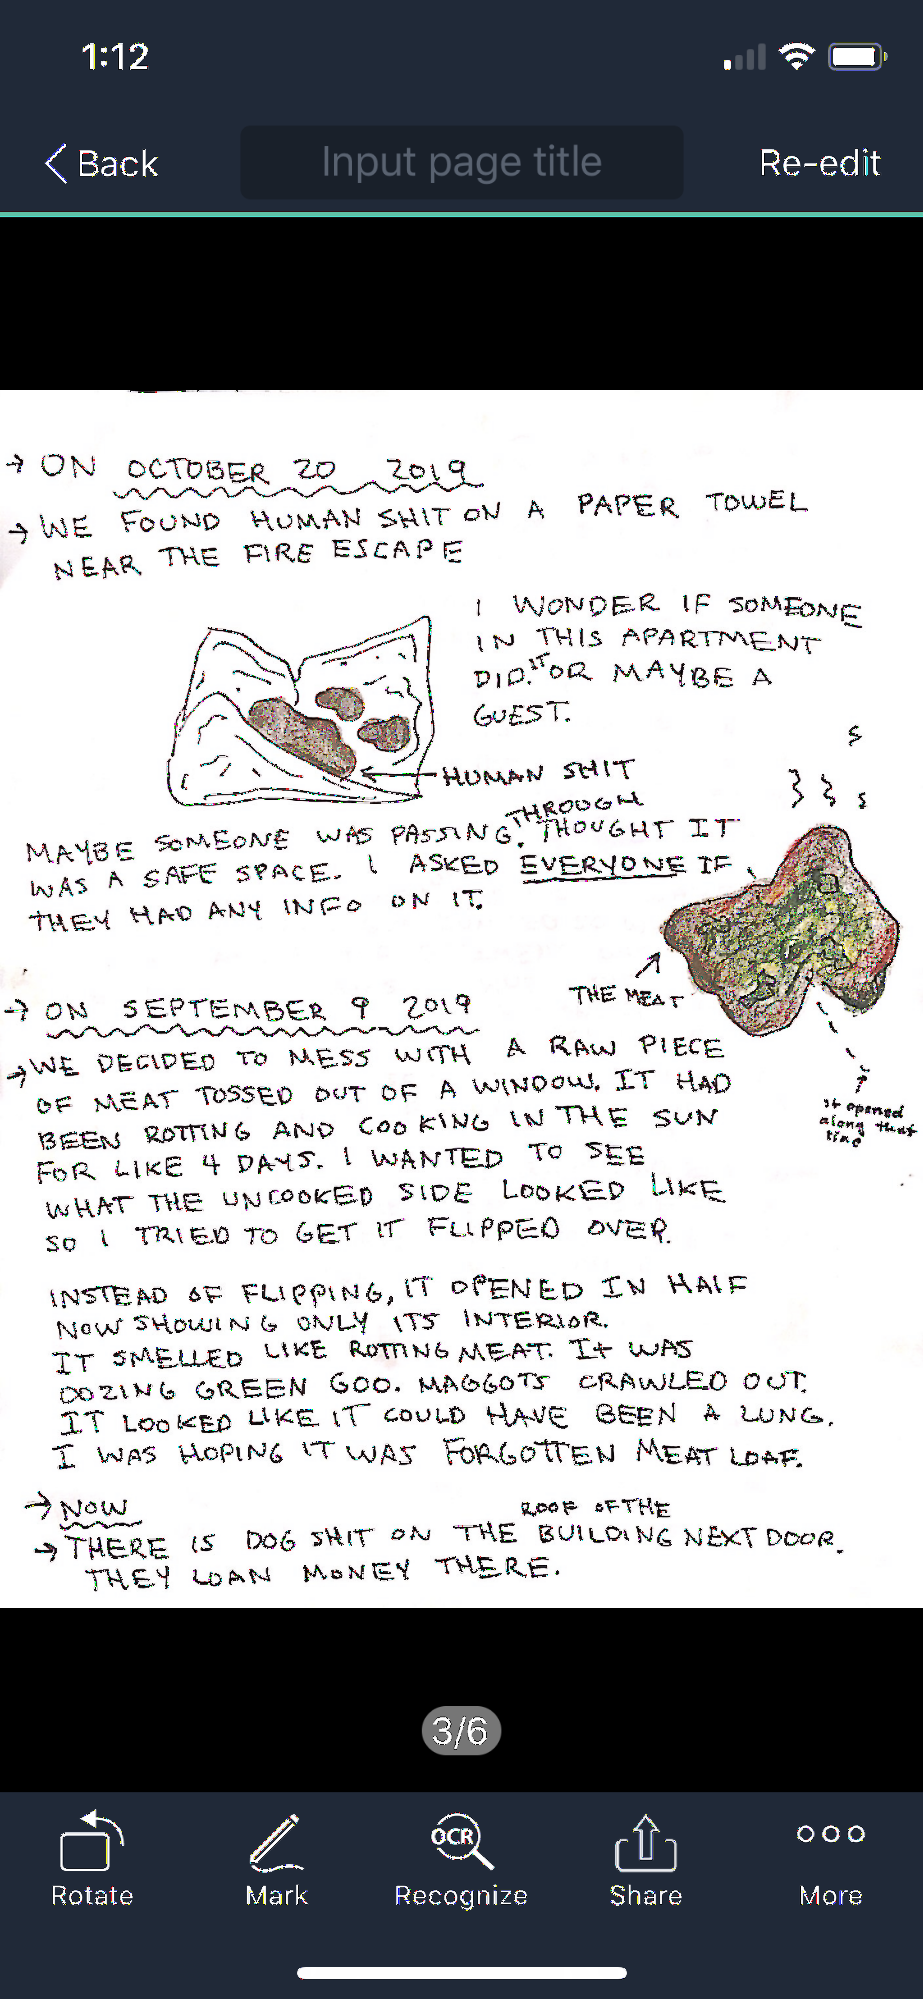 1:12
Back
Input page title
Re-edit
→ ON OCTOBER 20 2019
→ WE FOUND HUMAN SHIT ON A PAPER TOWEL
NEAR THE FIRE ESCAPE
I WONDER IF SOMEONE
IN THIS APARTMENT
DID IT. OR MAYBE A
GUEST.
HUMAN SHIT
MAYBE SOMEONE WAS PASSING THROUGH. THOUGHT IT
WAS A SAFE SPACE. I ASKED EVERYONE IF
THEY HAD ANY INFO ON IT.
THE MEAT
→ ON SEPTEMBER 9 2019
→ WE DECIDED TO MESS WITH A RAW PIECE
OF MEAT TOSSED OUT OF A WINDOW. IT HAD
BEEN ROTTING AND COOKING IN THE SUN
FOR LIKE 4 DAYS. I WANTED TO SEE
WHAT THE UNCOOKED SIDE LOOKED LIKE
SO I TRIED TO GET IT FLIPPED OVER.
It opened
along that
line
INSTEAD OF FLIPPING, IT OPENED IN HALF
NOW SHOWING ONLY ITS INTERIOR.
IT SMELLED LIKE ROTTING MEAT. It WAS
OOZING GREEN GOO. MAGGOTS CRAWLED OUT.
IT LOOKED LIKE IT COULD HAVE BEEN A LUNG.
I WAS HOPING IT WAS FORGOTTEN MEAT LOAF.
→ NOW
→ THERE IS DOG SHIT ON THE ROOF OF THE BUILDING NEXT DOOR.
THEY LOAN MONEY THERE.
3/6
Rotate
Mark
OCR
Recognize
Share
More